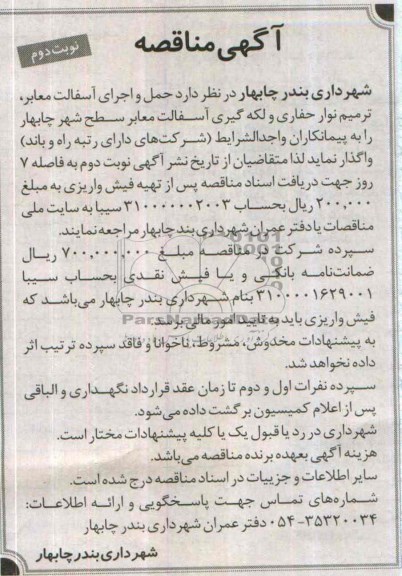 آگهی مناقصه
نوبت دوم
شهرداری بندر چابهار در نظر دارد حمل و اجرای آسفالت معابر،
ترمیم نوار حفاری و لکه گیری آسفالت معابر سطح شهر چابهار
را به پیمانکاران واجدالشرایط (شرکت‌های دارای رتبه راه و باند)
واگذار نماید لذا متقاضیان از تاریخ نشر آگهی نوبت دوم به فاصله ۷
روز جهت دریافت اسناد مناقصه پس از تهیه فیش واریزی به مبلغ
۲۰۰,۰۰۰ ریال بحساب ۳۱۰۰۰۰۰۰۲۰۰۳ سیبا به سایت ملی
مناقصات یا دفتر عمران شهرداری بندچابهار مراجعه نمایند.
سپرده شرکت در مناقصه مبلغ ۷۰۰,۰۰۰,۰۰۰ ریال
ضمانت‌نامه بانکی و یا فیش نقدی بحساب سیبا
۳۱۰۰۰۰۱۶۲۹۰۰۱ بنام شهرداری بندر چابهار می‌باشد که
فیش واریزی باید به تایید امور مالی برسد.
به پیشنهادات مخدوش، مشروط، ناخوانا و فاقد سپرده ترتیب اثر
داده نخواهد شد.
سپرده نفرات اول و دوم تا زمان عقد قرارداد نگهداری و الباقی
پس از اعلام کمیسیون برگشت داده می‌شود.
شهرداری در رد یا قبول یک یا کلیه پیشنهادات مختار است.
هزینه آگهی بعهده برنده مناقصه می‌باشد.
سایر اطلاعات و جزییات در اسناد مناقصه درج شده است.
شماره‌های تماس جهت پاسخگویی و ارائه اطلاعات:
۰۵۴-۳۵۳۲۰۰۳۴ دفتر عمران شهرداری بندر چابهار
شهرداری بندر چابهار